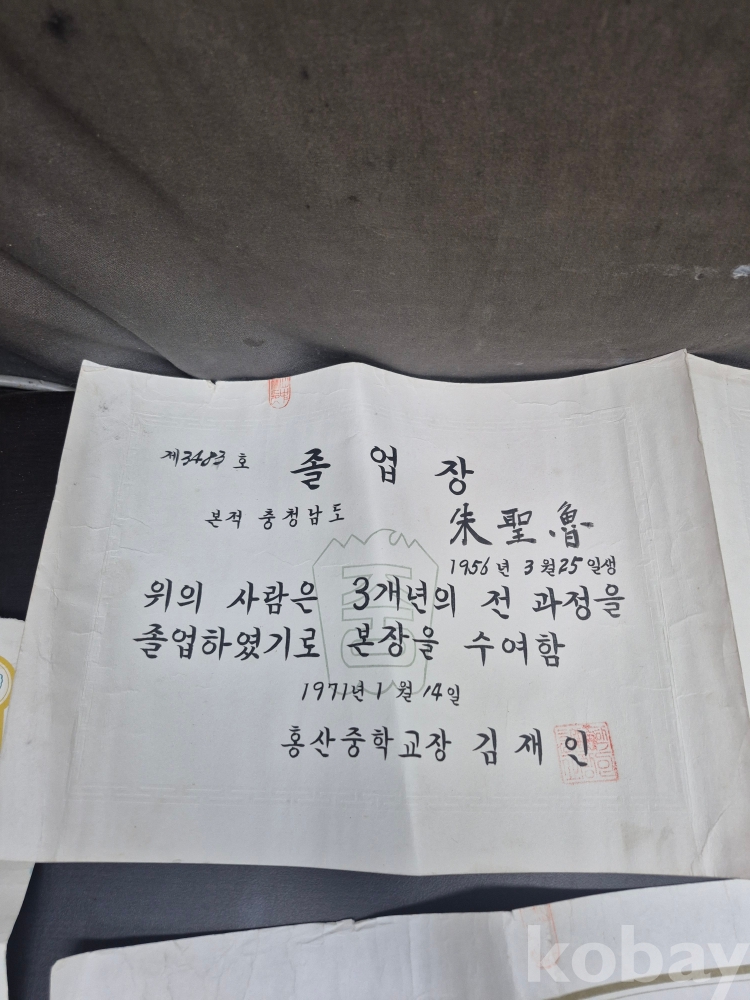 제3483호 졸업장
본적 충청남도
朱聖魯
1956년 3월25일생
위의 사람은 3개년의 전 과정을
졸업하였기로 본장을 수여함
1971년 1월 14일
홍산중학교장 김재인
kobay